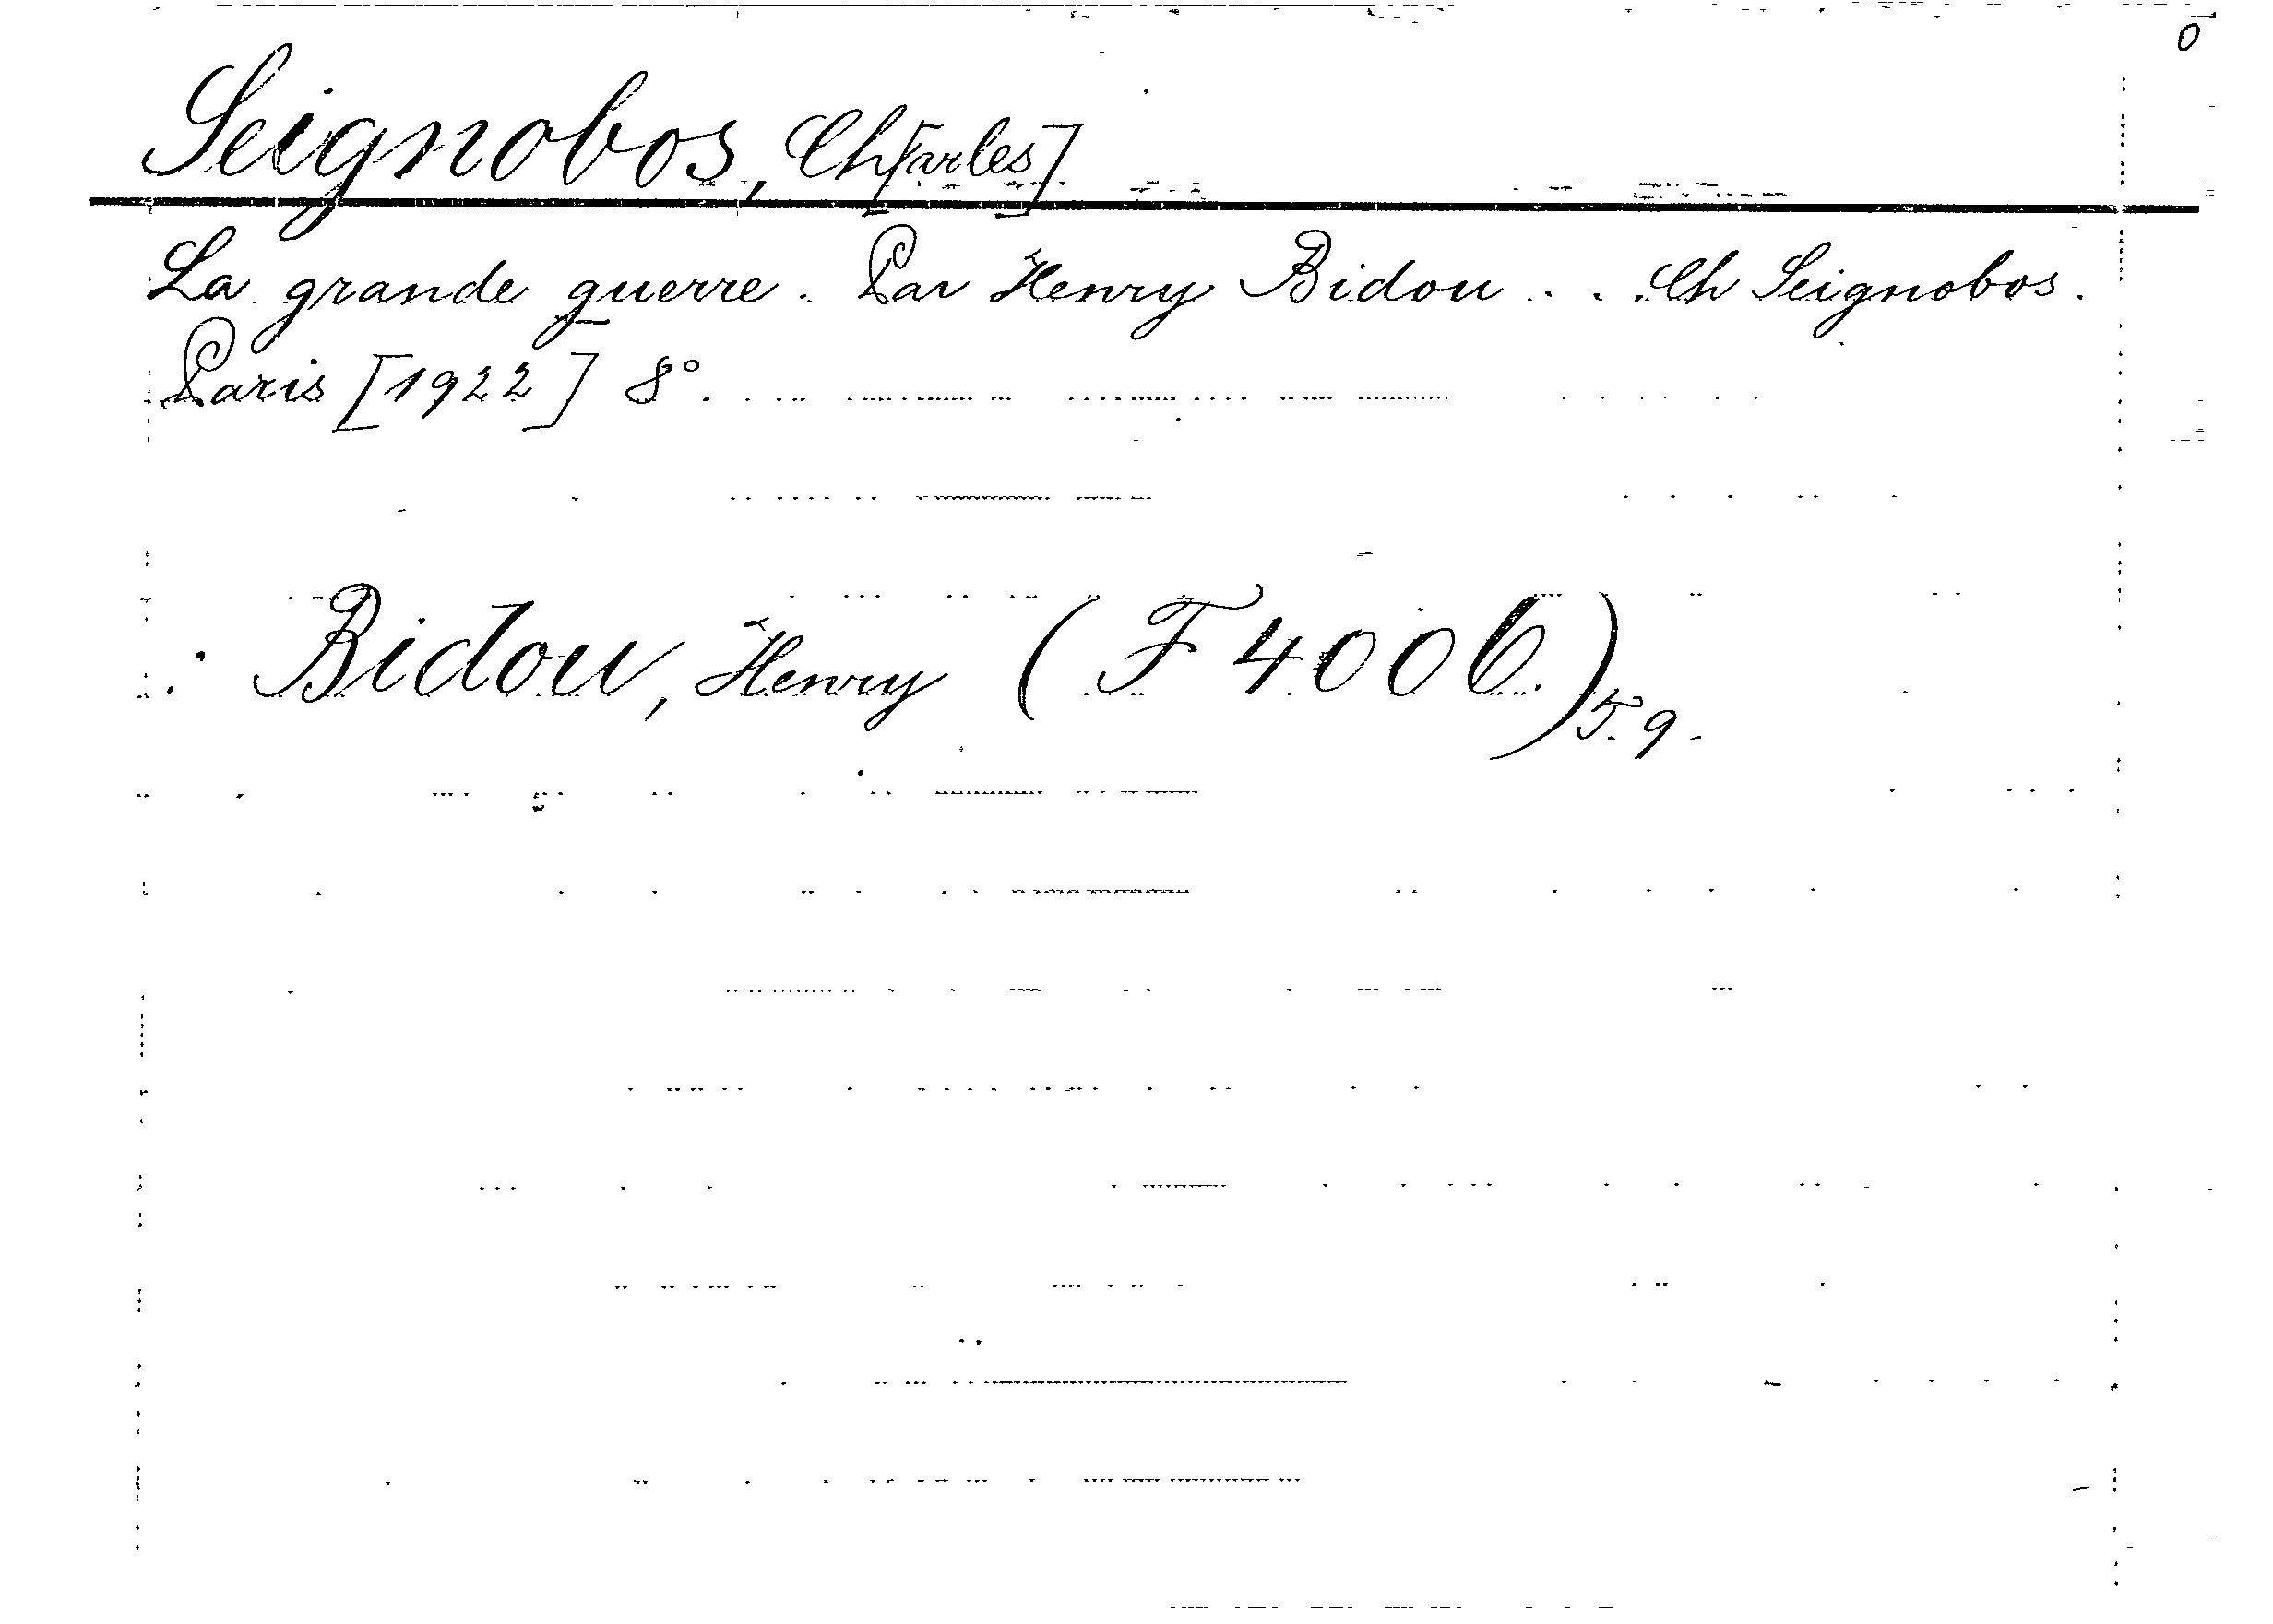 0
Seignobos, Ch[arles]
La grande guerre. Par Henry Bidou... Ch Seignobos.
Paris [1922] 8°.
: Bidou, Henry (F 400 b.) 5.9.